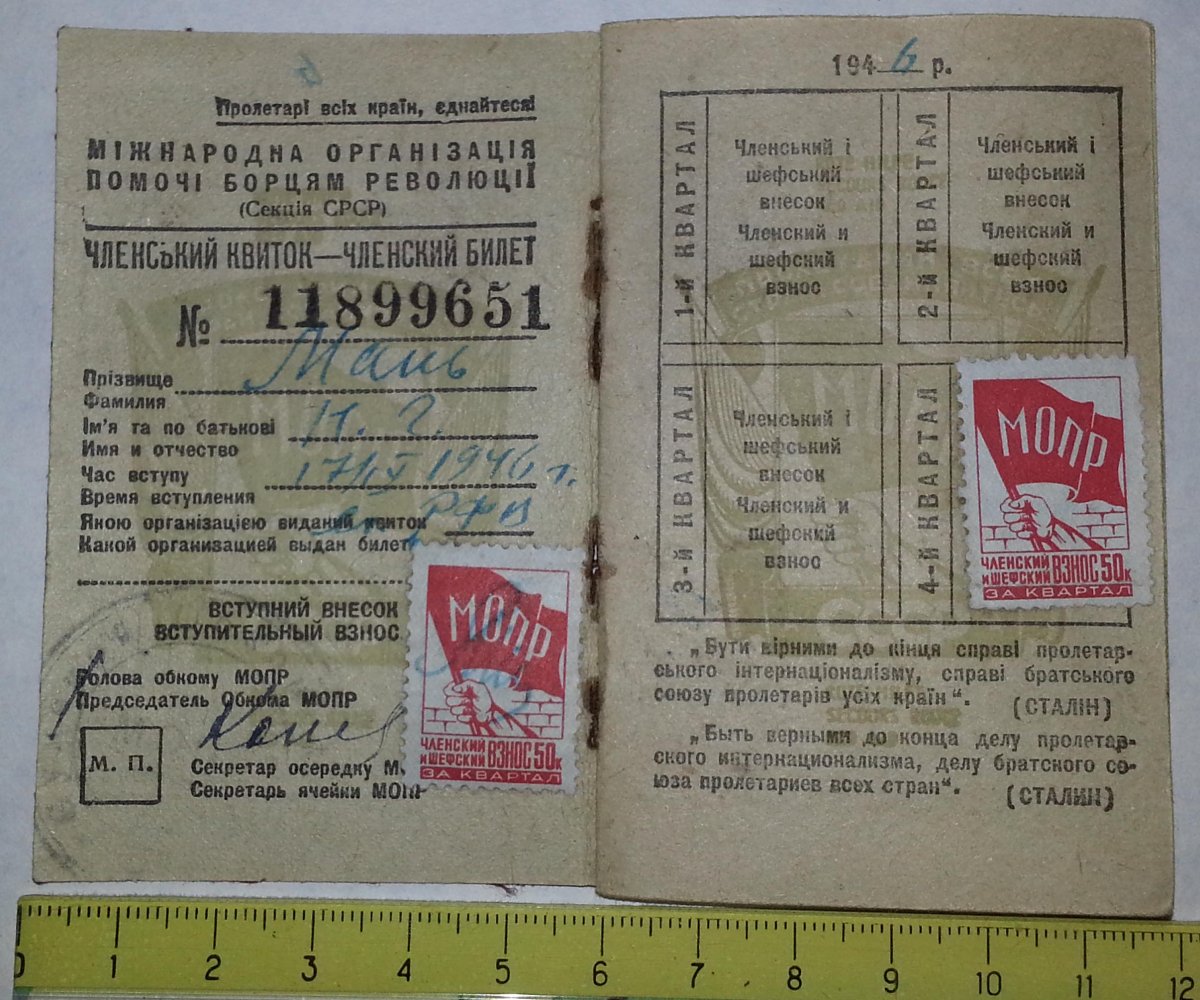 Пролетарі всіх країн, єднайтеся!
МІЖНАРОДНА ОРГАНІЗАЦІЯ
ПОМОЧІ БОРЦЯМ РЕВОЛЮЦІЇ
(Секція СРСР)
ЧЛЕНСЬКИЙ КВИТОК—ЧЛЕНСКИЙ БИЛЕТ
№ 11899651
Прізвище Мань
Фамилия
Ім'я та по батькові
Имя и отчество
Час вступу 17/IX 1946 г.
Время вступления
Якою організацією виданий квиток
Какой организацией выдан билет
ВСТУПНИЙ ВНЕСОК
ВСТУПИТЕЛЬНЫЙ ВЗНОС
Голова обкому МОПР
Председатель Обкома МОПР
М. П.
Секретар осередку М
Секретарь ячейки МОПР
МОПР
ЧЛЕНСКИЙ
и ШЕФСКИЙ ВЗНОС 50к
ЗА КВАРТАЛ
1946 р.
1-й КВАРТАЛ
Членський і
шефський
внесок
Членский и
шефский
взнос
2-й КВАРТАЛ
Членський і
шефський
внесок
Членский и
шефский
взнос
3-й КВАРТАЛ
Членський і
шефський
внесок
Членский и
шефский
взнос
4-й КВАРТАЛ
МОПР
ЧЛЕНСКИЙ
и ШЕФСКИЙ ВЗНОС 50к
ЗА КВАРТАЛ
„Бути вірними до кінця справі пролетар-
ського інтернаціоналізму, справі братського
союзу пролетарів усіх країн“.
(СТАЛІН)
„Быть верными до конца делу пролетар-
ского интернационализма, делу братского со-
юза пролетариев всех стран“.
(СТАЛИН)
0 1 2 3 4 5 6 7 8 9 10 11 12